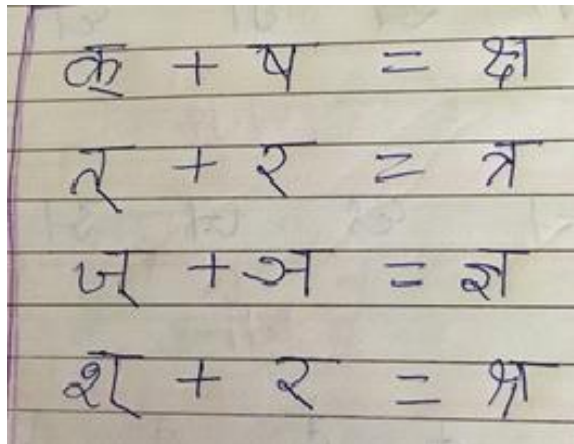 क् + ष = क्ष
त् + र = त्र
ज् + ञ = ज्ञ
श् + र = श्र